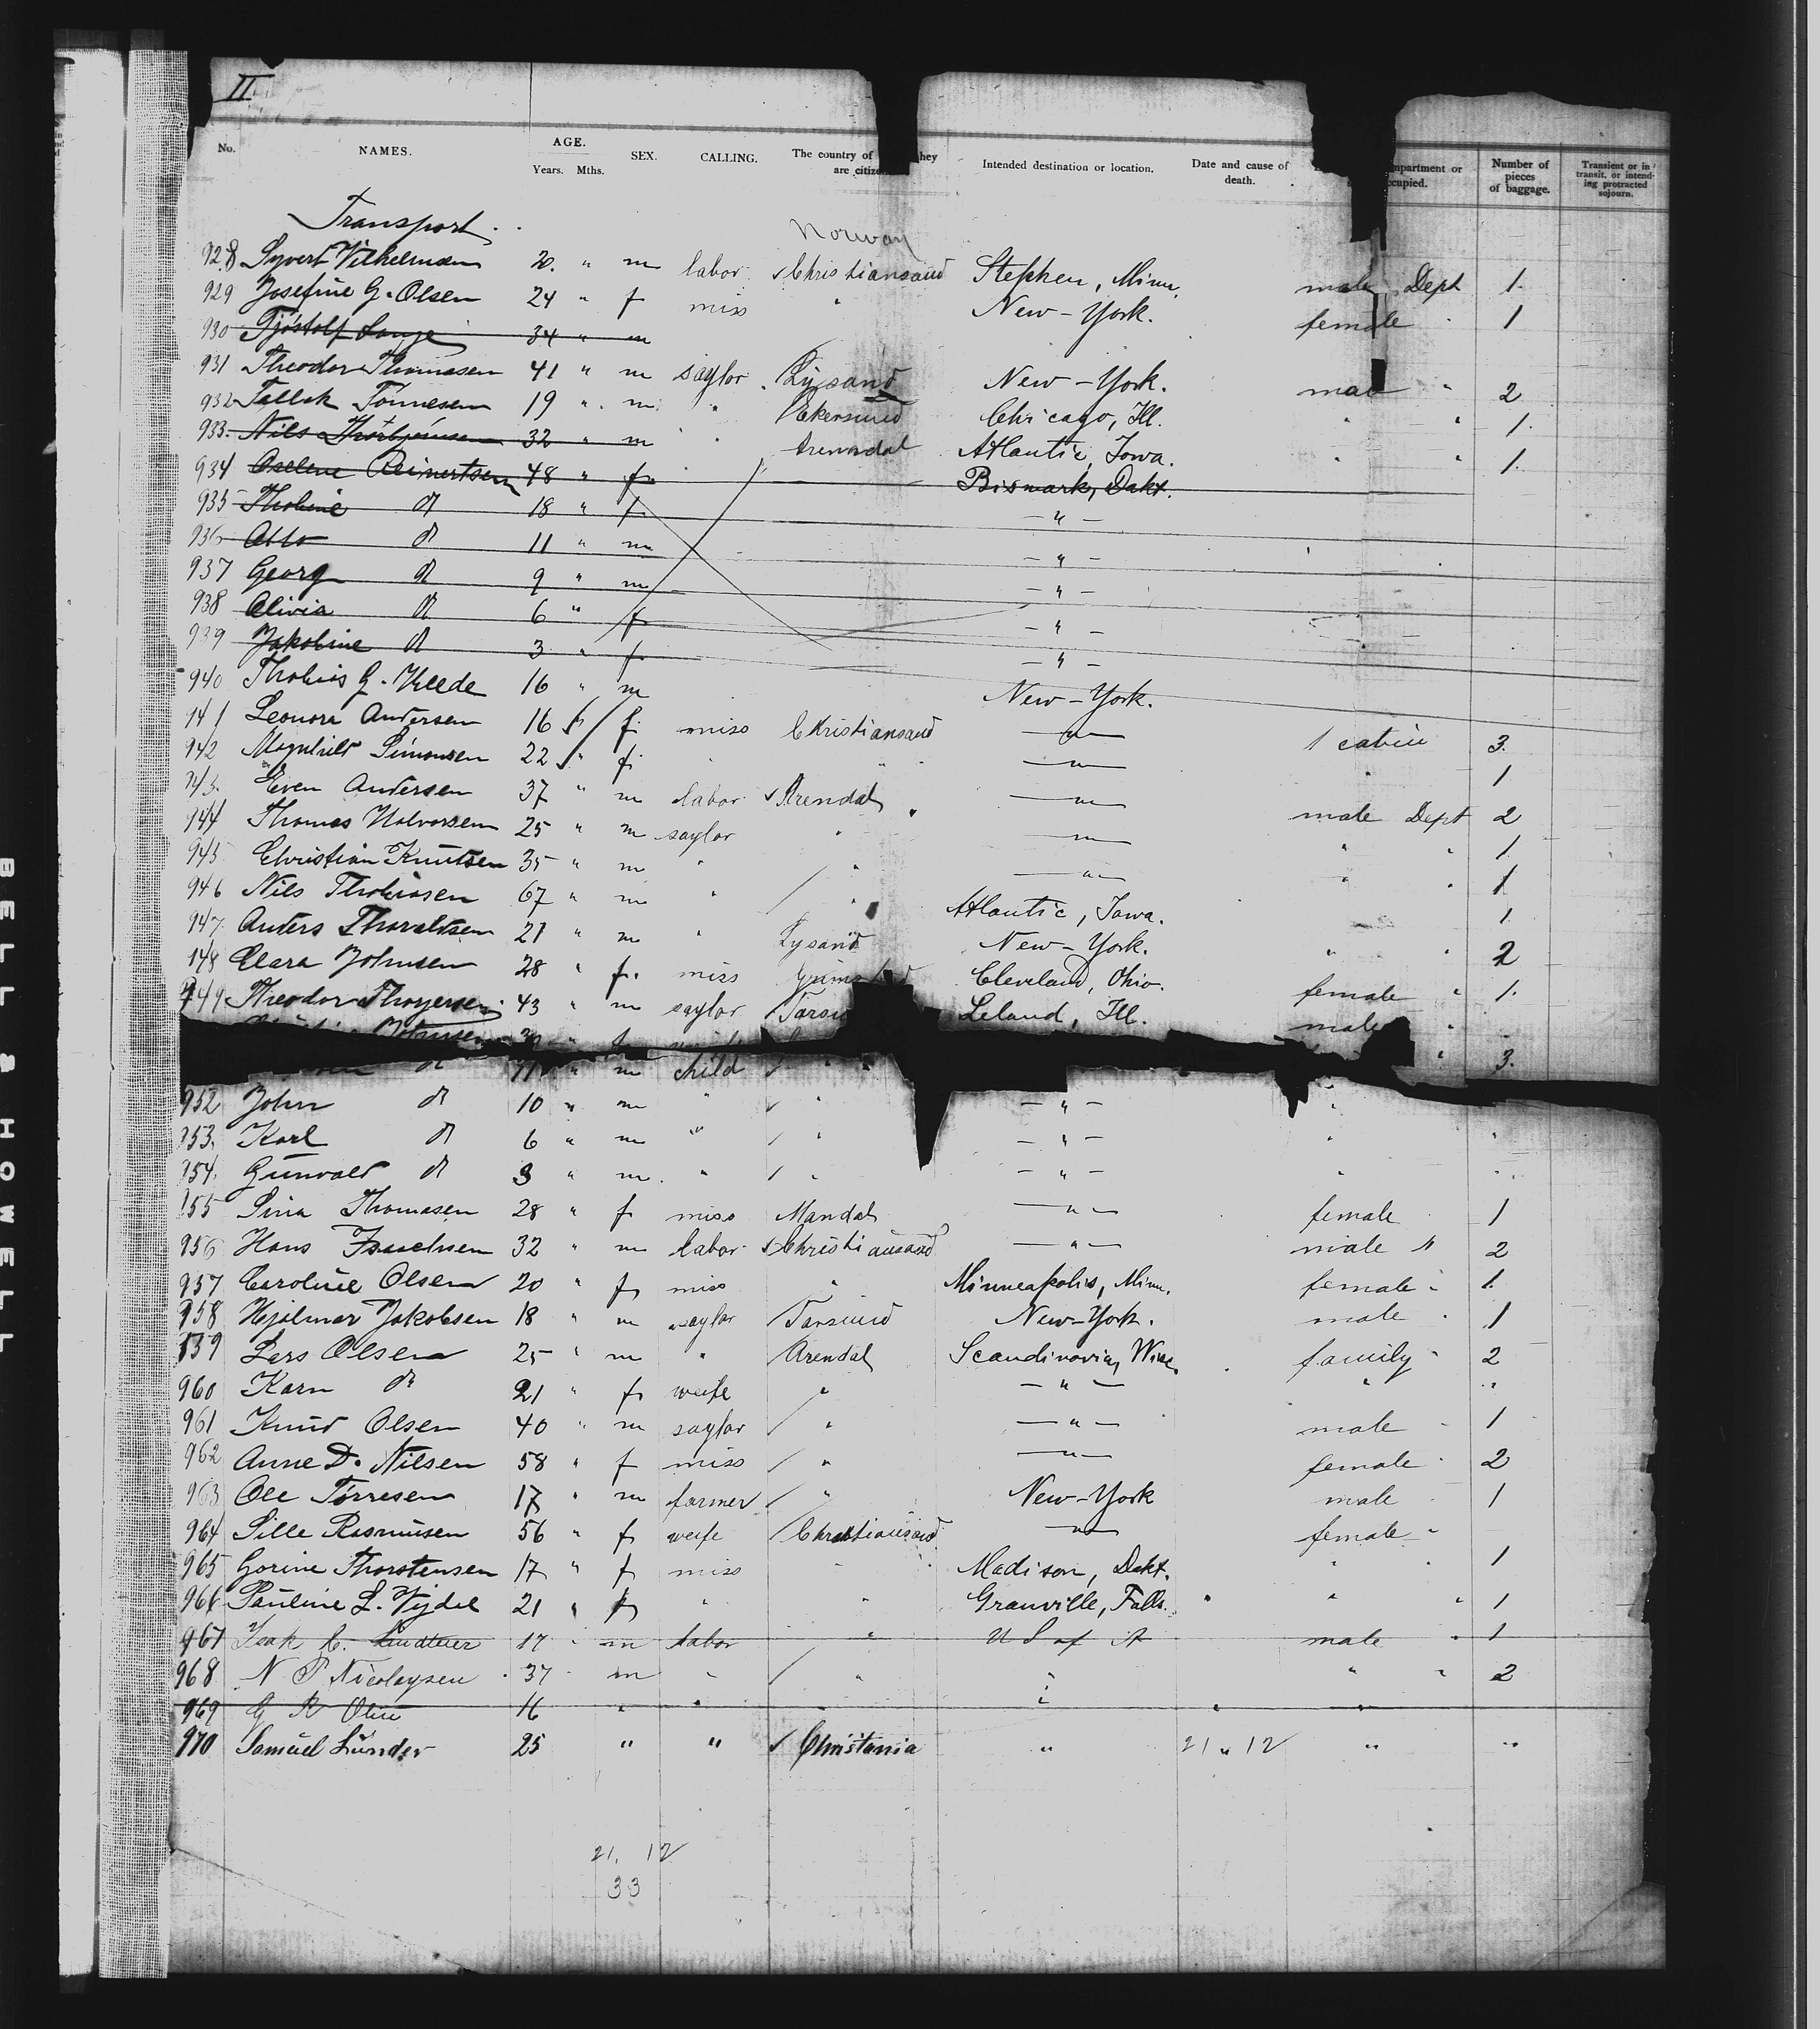 II
No. NAMES. AGE. Years. Mths. SEX. CALLING. The country of hey are citize Intended destination or location. Date and cause of death. mpartment or ccupied. Number of pieces of baggage. Transient or in transit, or intending protracted sojourn.
Transport
Norway
928 Syvert Vilhelmsen 20. " m labor ✓ Christiansand Stephen, Minn. male Dept 1.
929 Josefine G. Olsen 24 " f miss " New-York. female " 1
930 Tjöstolf Lange 34 " m
931 Theodor Thomasen 41 " m saylor Lysand New-York. male " 2
932 Tallak Tönnesen 19 " m " Ekersund Chicago, Ill. " " 1.
933. Nils Thorbjörnsen 32 " m " Arendal Atlantic, Iowa. " " 1.
934 Oselene Reinertsen 48 " f. Bismark, Dakt.
935 Tholine d 18 " f. - " -
936 Otto d 11 " m - " -
937 Georg d 9 " m - " -
938 Olivia d 6 " f - " -
939 Jakobine d 3 " f. - " -
940 Tholius G. 16 " m New-York.
941 Leonora Andersen 16 f. miss Christiansand - " - 1 cabin 3.
942 Magnhild Simonsen 22 " f. " " - " - " 1
943. Even Andersen 37 " m labor ✓ Arendal - " - male Dept 2
944 Thomas Halvorsen 25 " m saylor " - " - " " 1.
945 Christian Knutsen 35 " m " / " - " - " " 1
946 Nils Thobiasen 67 " m " / " Atlantic, Iowa. 1.
947. Anders Thorvaldsen 21 " m " Lysand New-York. " " 2
948 Clara Johnsen 28 " f. miss Cleveland, Ohio. female " 1.
949 Theodor Thorgersen 43 " m saylor Leland, Ill. male "
d 11 " m child " " 3.
952 John d 10 " m " ✓ " - " - "
953. Karl d 6 " m " / " - " - " "
954. Gunvald d 3 " m. " / " - " - " "
955 Sina Thomasen 28 " f miss Mandal - " - female 1
956 Hans 32 " m labor ✓ Christiansand - " - male " 2
957 Caroline Olsen 20 " f miss " Minneapolis, Minn. female " 1.
958 Hjalmar Jakobsen 18 " m saylor Farsund New-York. male " 1
959 Lars Olsen 25 " m " Arendal Scandinavia, Wisc. family " 2
960 Karn d 21 " f weife " - " - " "
961 Knud Olsen 40 " m saylor / " - " - male " 1
962 Anne D. Nilsen 58 " f miss / " - " - female " 2
963 Ole Törresen 17 " m farmer / " New-York male " 1
964 Sille Rasmusen 56 " f weife / Christiansand - " - female "
965 Gorine Thorstensen 17 " f miss " Madison, Dakt. " " 1
966 Pauline L. 21 " f " " Granville, Falls. " " 1
967 Isak C. 17 " m labor " U S of A male " 1
968 N P Nicolaysen 37 m " / " " " " 2
969 G R 16 " " " " " "
970 Samuel Lunder 25 " " ✓ Christania " 21 " 12 " "
21. 12
33
BELL & HOWELL